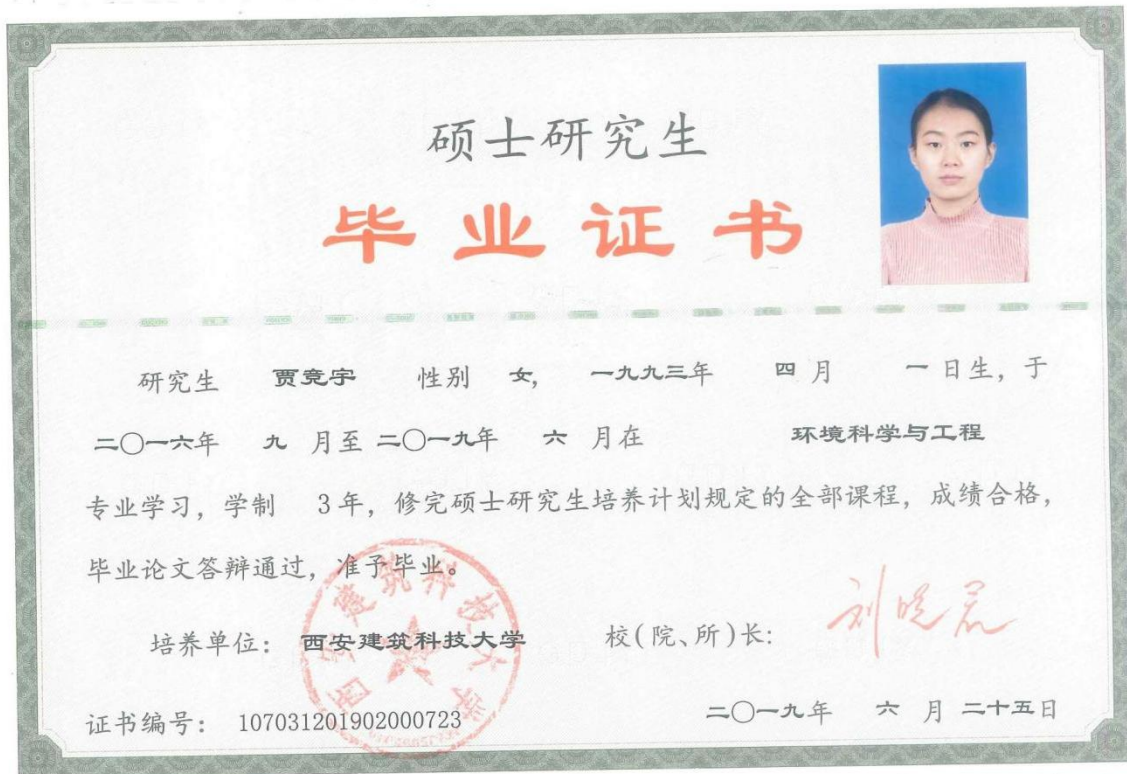 硕士研究生
毕业证书
研究生 贾竞宇 性别 女, 一九九三年 四月 一日生, 于
二〇一六年 九 月至 二〇一九年 六 月在 环境科学与工程
专业学习, 学制 3年, 修完硕士研究生培养计划规定的全部课程, 成绩合格,
毕业论文答辩通过, 准予毕业。
培养单位: 西安建筑科技大学 校(院、所)长: 刘晓君
西安建筑科技大学
证书编号: 107031201902000723 二〇一九年 六 月 二十五日